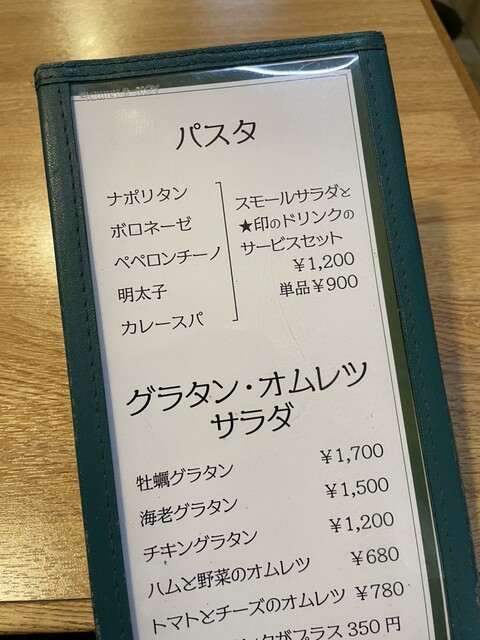 パスタ
ナポリタン
ボロネーゼ
ペペロンチーノ
明太子
カレースパ
スモールサラダと
★印のドリンクの
サービスセット
¥1,200
単品¥900
グラタン・オムレツ
サラダ
牡蠣グラタン ¥1,700
海老グラタン ¥1,500
チキングラタン ¥1,200
ハムと野菜のオムレツ ¥680
トマトとチーズのオムレツ ¥780
プラス350円